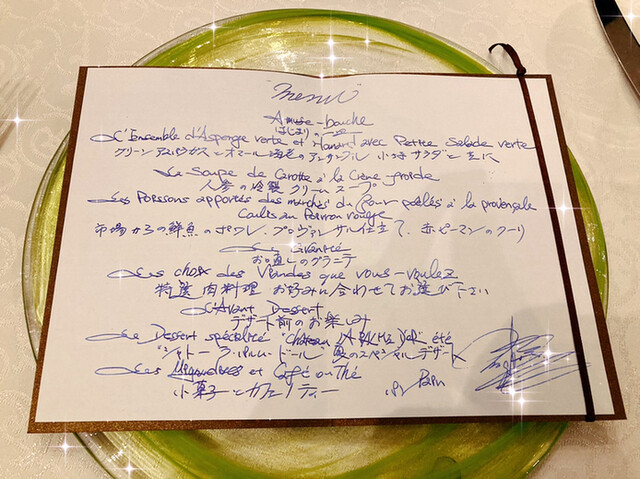 "Menu"
Amuse-bouche
はじまりの一皿
L'Ensemble d'Asperge verte et Homard avec Petite Salade verte
グリーンアスパラガスとオマール海老のアンサンブル 小さなサラダと共に
La Soupe de Carotte à la Crème froide
人参の冷製クリームスープ
Les Poissons apportés des marchés du jour poêlés à la provençale
Coulis au Poivron rouge
市場からの鮮魚のポワレ、プロヴァンサル仕立て、赤ピーマンのクーリ
Le Granité
お口直しのグラニテ
Les choix des Viandes que vous-voulez
特選肉料理 お好みに合わせてお選び下さい
L'Avant Dessert
デザート前のお楽しみ
Le Dessert spécialité "Château LA PALME D'OR" été
"シャトー ラ・パルム・ドール" 夏のスペシャルデザート
Les Mignardises et Café ou Thé
小菓子とカフェ/ティー
Pain